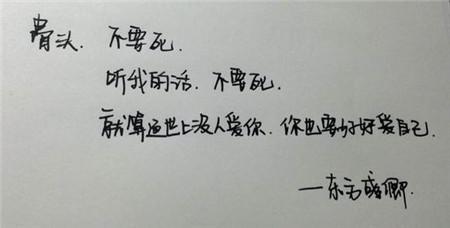 骨头. 不要死.
听我的话. 不要死.
就算这世上没人爱你. 你也要好好爱自己.
—东方盛卿.